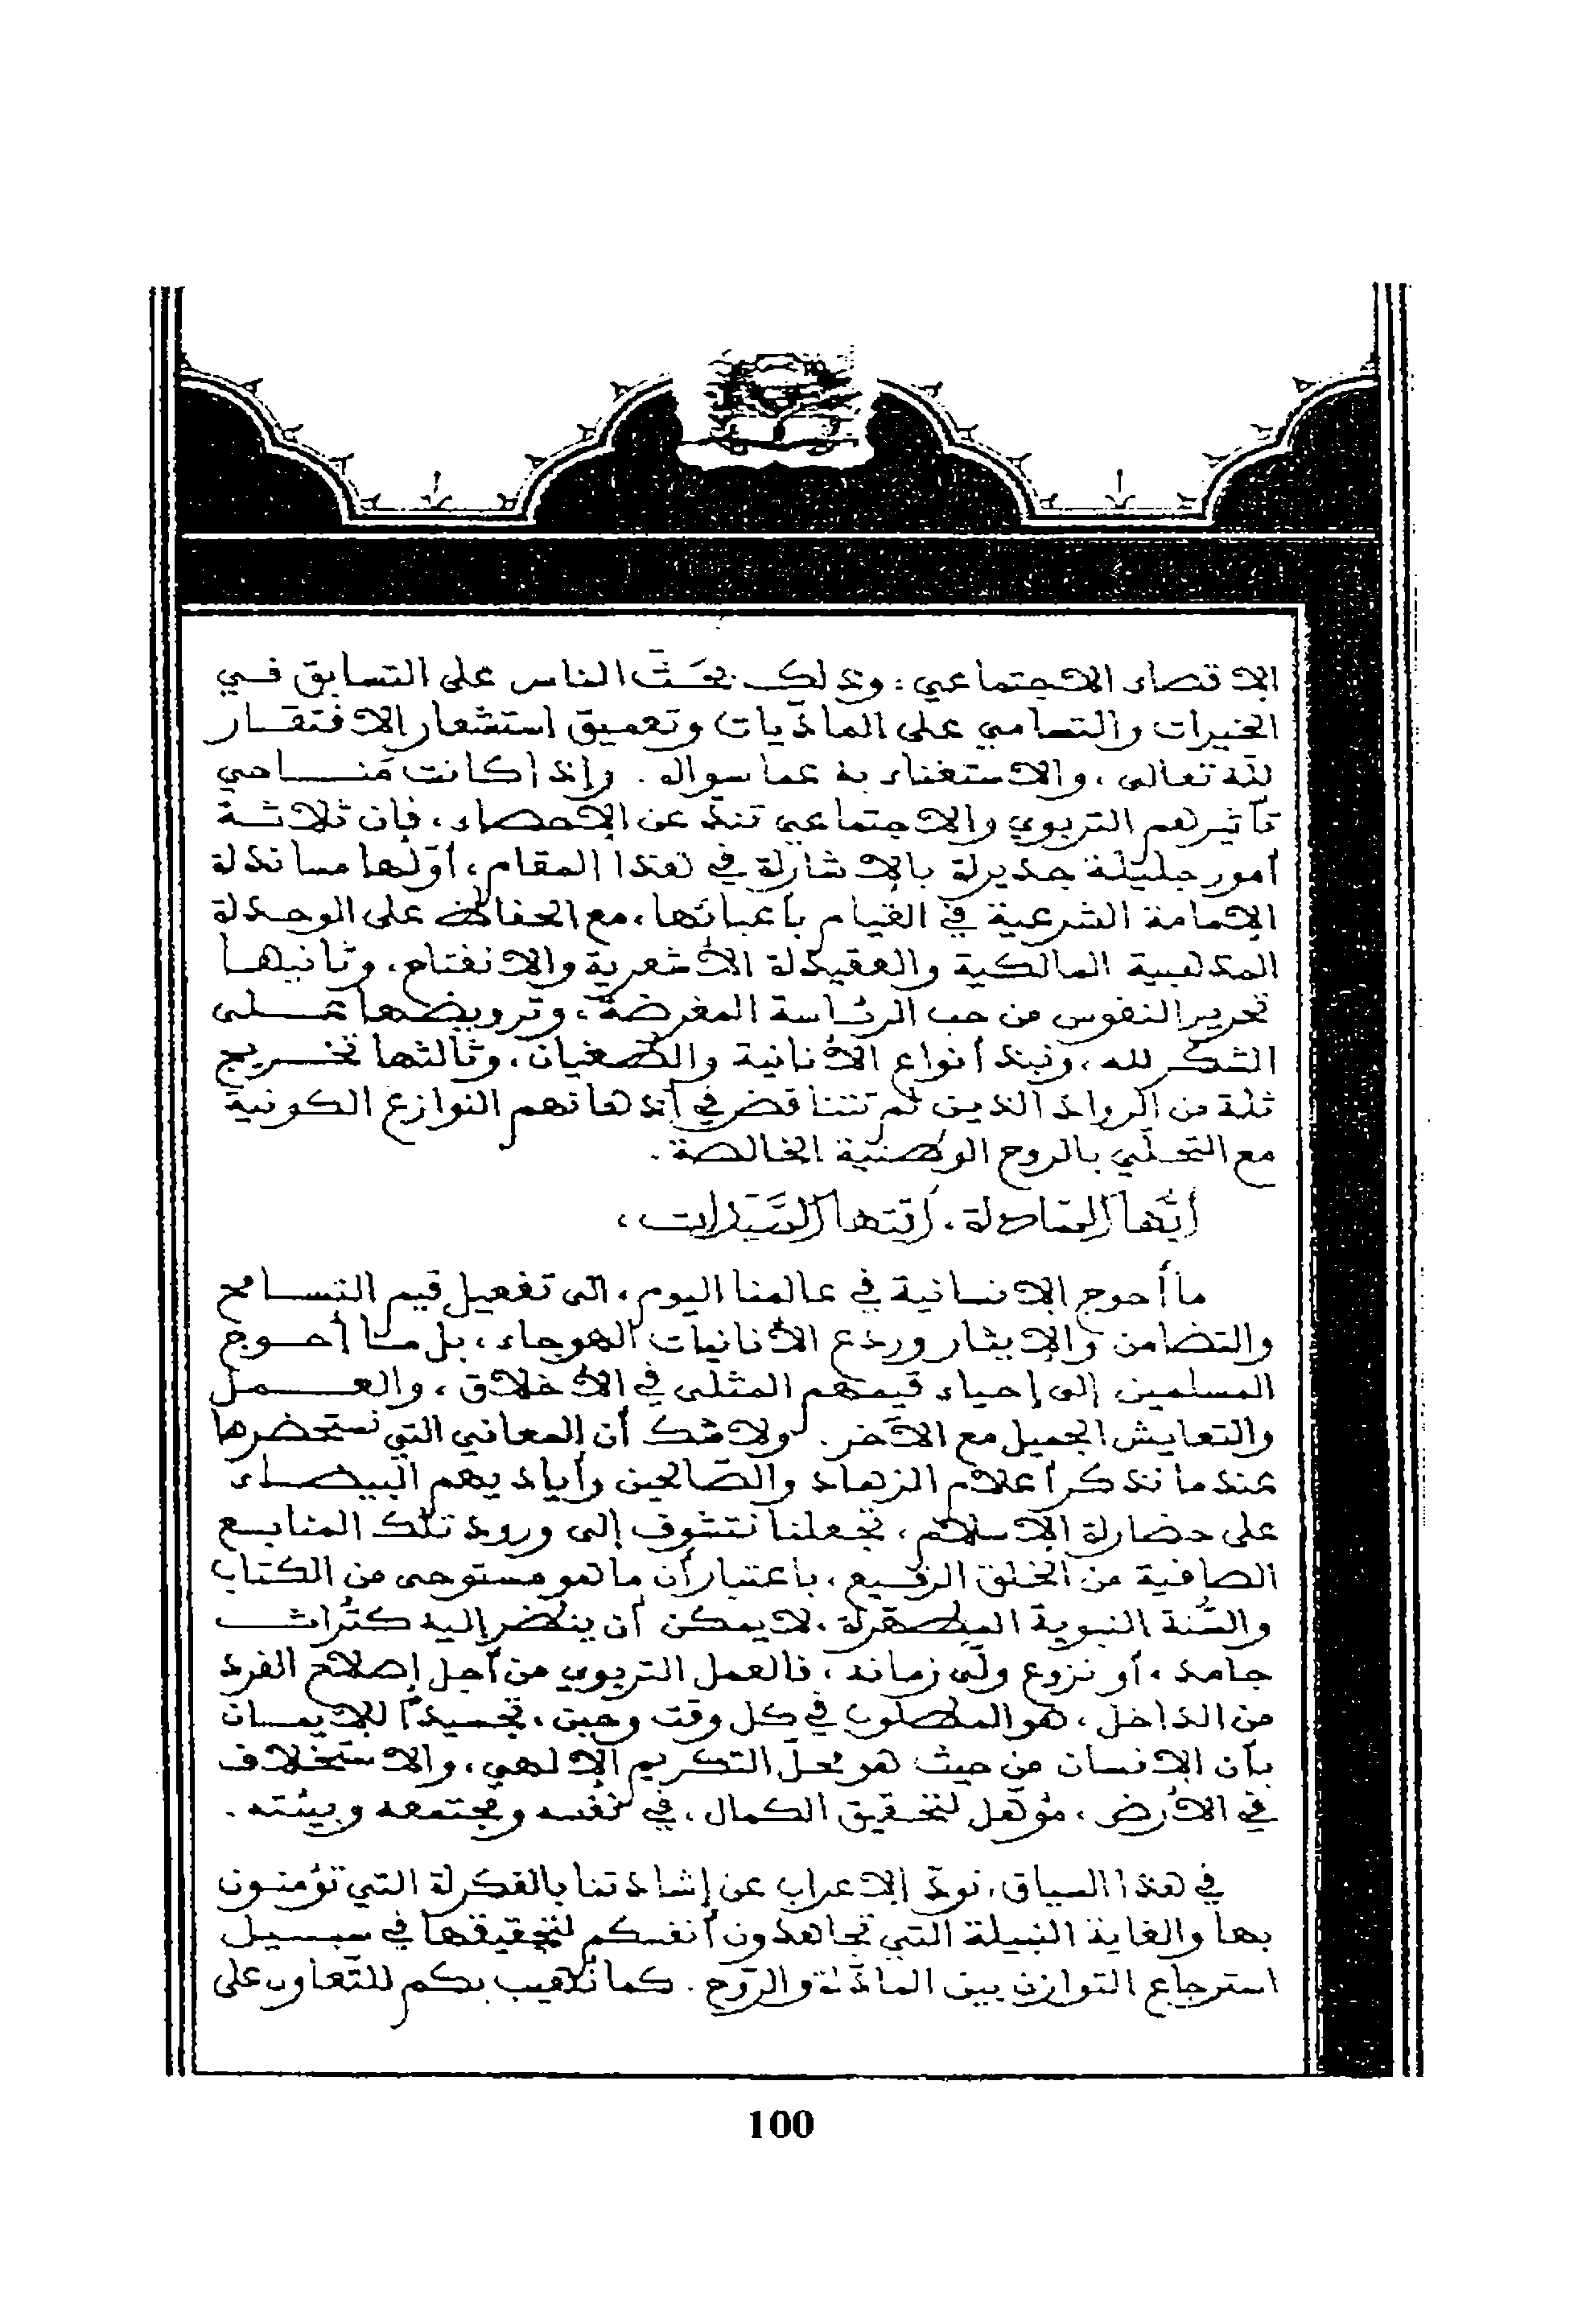 الإقصاء الاجتماعي؛ وذلك بحَثّ الناس على التسابق في
الخيرات والتسامي على الماديات وتعميق استشعار الافتقار
لله تعالى، والاستغناء به عما سواه. وإذا كانت مَناحي
تأثيرهم التربوي والاجتماعي تندّ عن الإحصاء، فإن ثلاثة
أمور جليلة جديرة بالإشارة في هذا المقام، أوّلها مساندة
الإمامة الشرعية في القيام بأعبائها، مع الحفاظ على الوحدة
المذهبية المالكية والعقيدة الأشعرية والانفتاح، وثانيها
تحرير النفوس من حب الرئاسة المغرضة، وترويضها على
الشكر لله، ونبذ أنواع الأنانية والطغيان، وثالثها تخريج
ثلة من الرواد الذين لم تتناقض في أذهانهم النوازع الكونية
مع التحلّي بالروح الوطنية الخالصة.
أيّها السادة، أيتها السَّيّدات،
ما أحوج الإنسانية في عالمنا اليوم، الى تفعيل قيم التسامح
والتضامن والإيثار وردع الأنانيات الهوجاء، بل ما أحوج
المسلمين إلى إحياء قيمهم المثلى في الأخلاق، والعمل
والتعايش الجميل مع الآخر. ولا شك أن المعاني التي نستحضرها
عندما نذكر أعلام الزهاد والصّالحين وأياديهم البيضاء
على حضارة الإسلام، تجعلنا نتشوف إلى ورود تلك المنابع
الصافية من الخلق الرفيع، باعتبار أن ما هو مستوحى من الكتاب
والسُّنة النبوية المطهرة، لا يمكن أن ينظر إليه كتُراث
جامد، أو نزوع ولّى زمانه، فالعمل التربوي من أجل إصلاح الفرد
من الداخل، هو المطلوب في كل وقت وحين، تجسيداً للإيمان
بأن الإنسان من حيث هو محلّ التكريم الإلهي، والاستخلاف
في الأرض، مؤهل لتحقيق الكمال، في نفسه ومجتمعه وبيئته.
في هذا السياق، نودّ الإعراب عن إشادتنا بالفكرة التي تؤمنون
بها والغاية النبيلة التي تجاهدون أنفسكم لتحقيقها في سبيل
استرجاع التوازن بين المادّة والرّوح. كما نُهيب بكم للتّعاون على
100